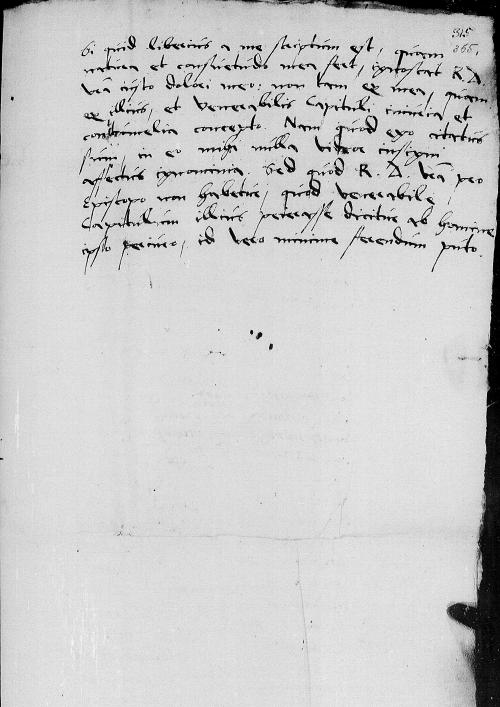 315
366
Si quid liberius a me scriptum est, quam
natura et consuetudo mea fert, ignoscat R. D.
Vra iusto dolori meo: non tam ex mea, quam
ex illius, et Venerabilis Capituli iniuria et
contumelia concepto. Nam quod ego citatus
sum, in eo mihi nulla videor insigni
affectus ignominia. Sed quod R. D. Vra pro
Episcopo non habetur, quod venerabile
Capitulum illius perijsse dicitur ab homine
ipso periuro, id vero minime ferendum puto.